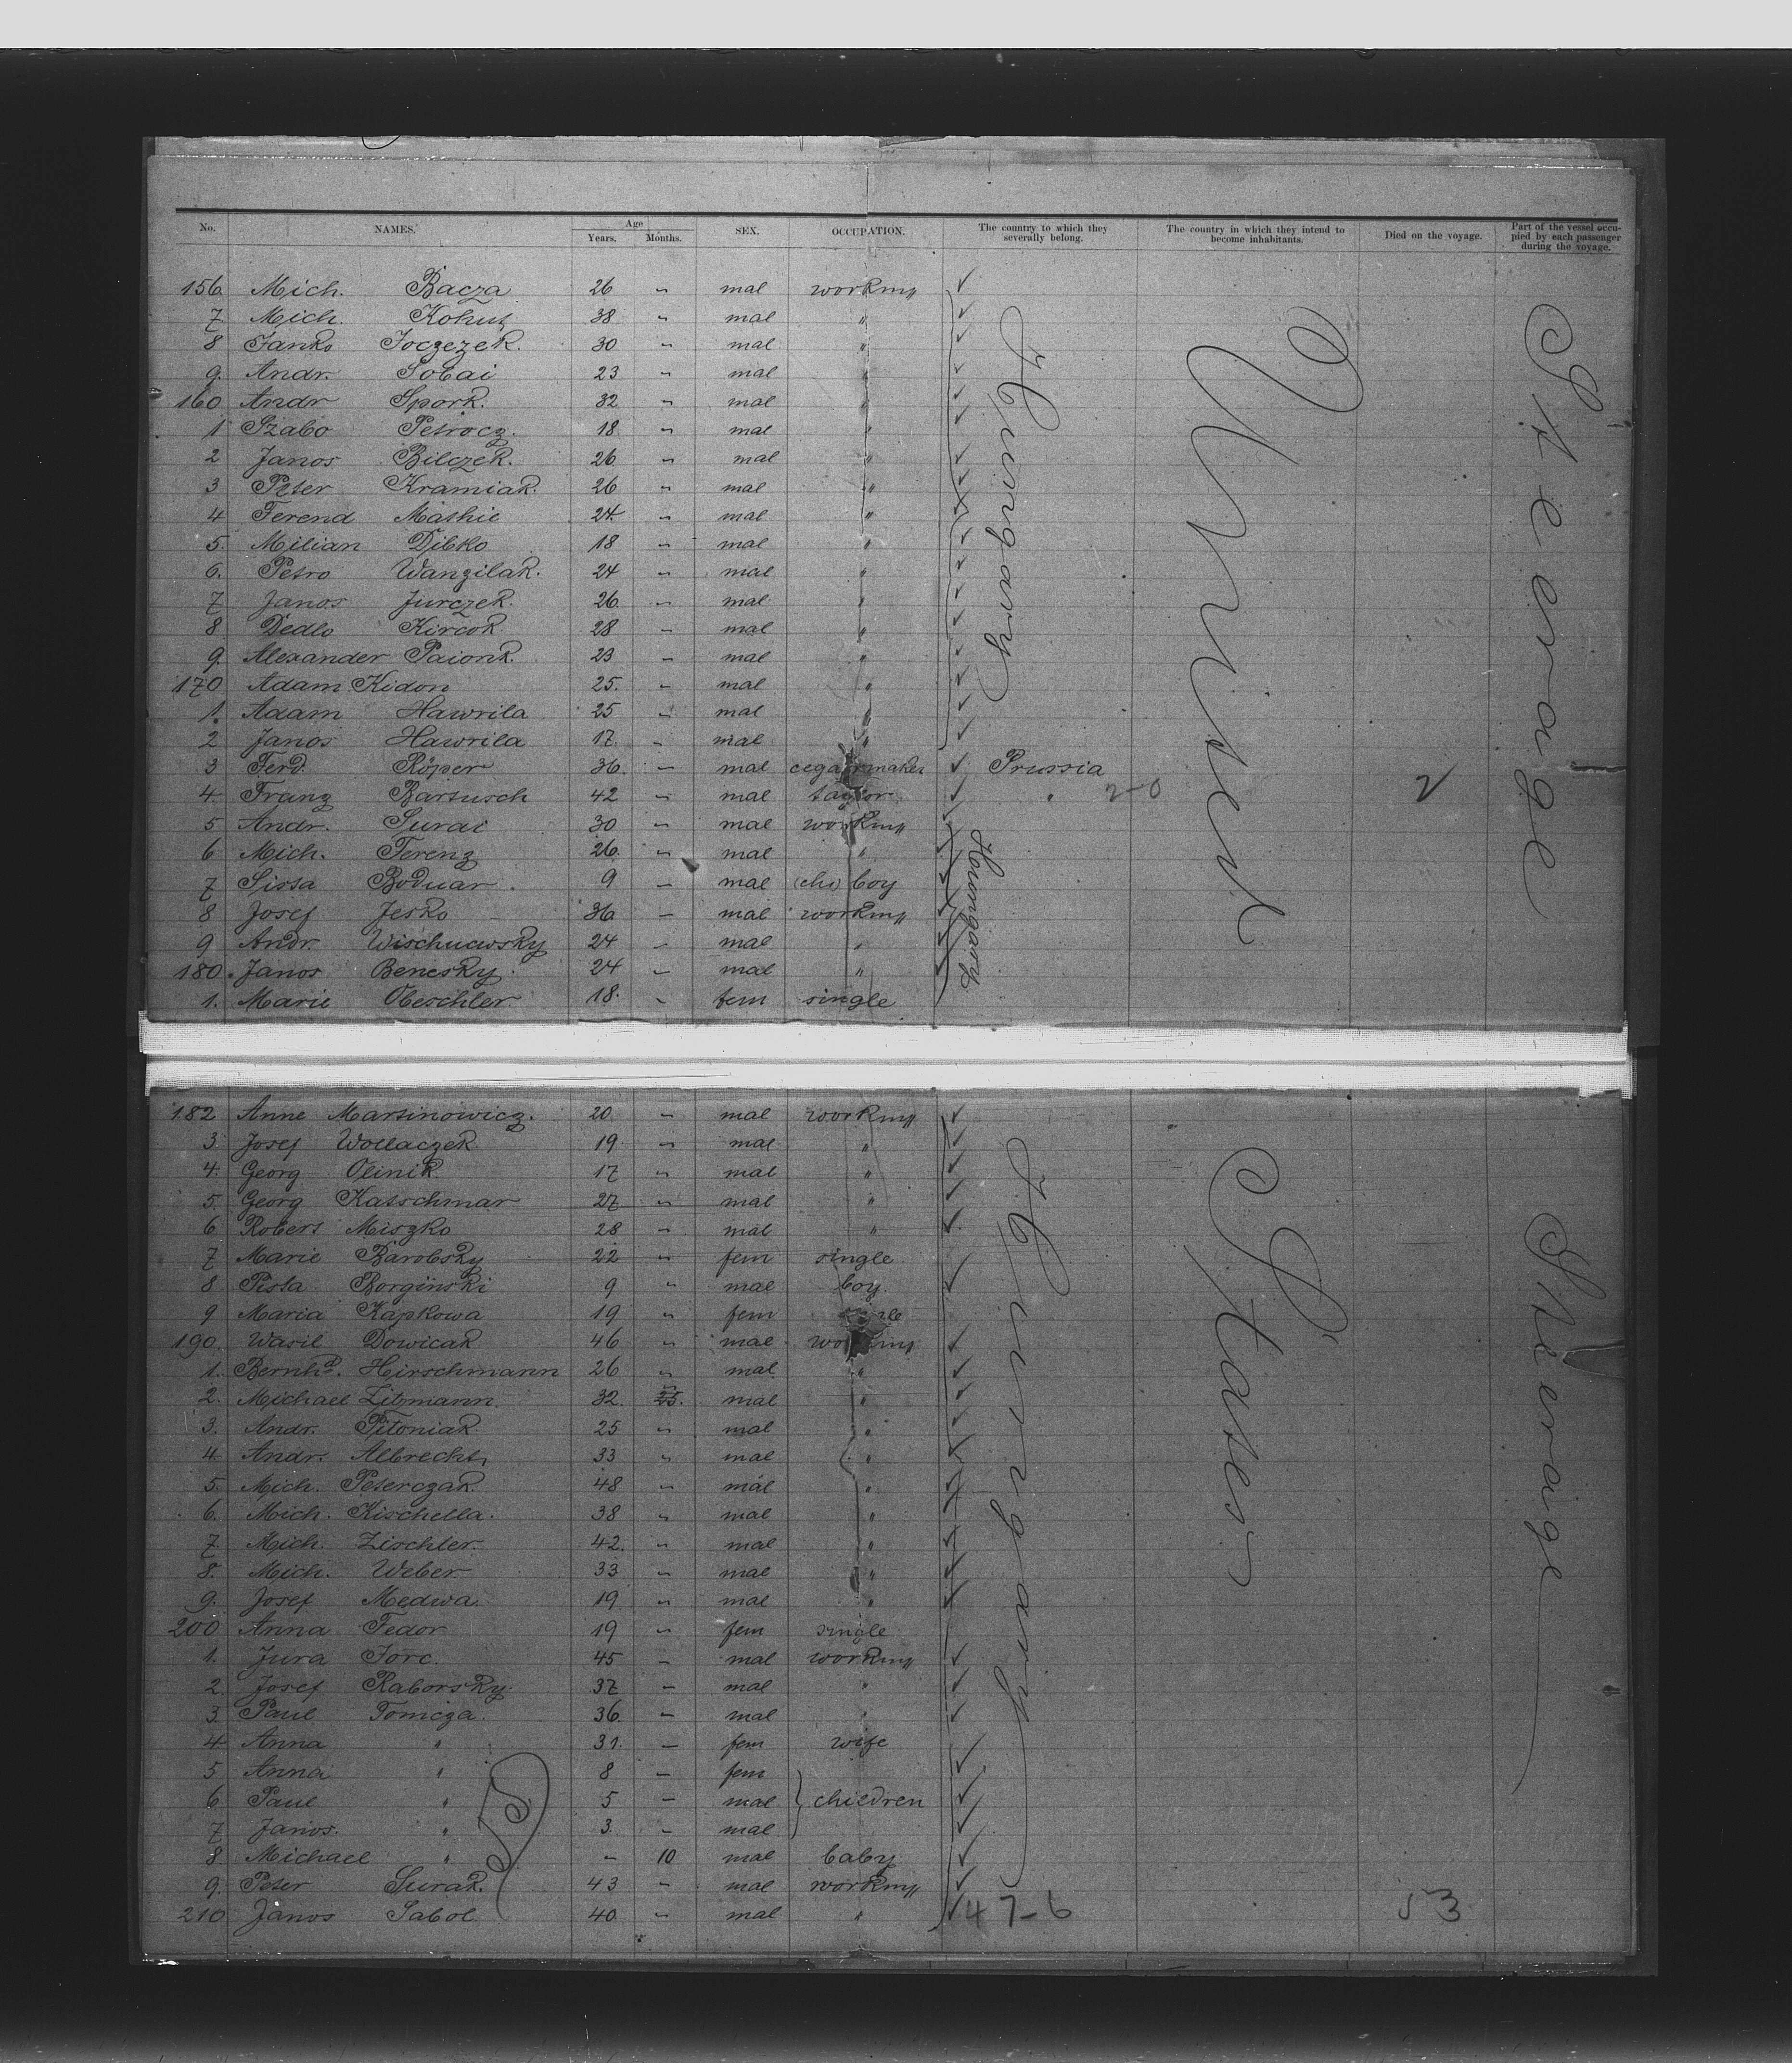 No. NAMES. Age Years. Months. SEX. OCCUPATION. The country to which they severally belong. The country in which they intend to become inhabitants. Died on the voyage. Part of the vessel occupied by each passenger during the voyage.
156 Mich. Bacza 26 " mal workmn
7 Mich. Kohut 38 " mal "
8 Janko Joczezek. 30 " mal "
9. Andr. Sobai 23 " mal "
160 Andr Spork. 32 " mal "
1 Szabo Petrocz. 18 " mal "
2 Janos Bilczek. 26 " mal "
3 Peter Kramiak. 26 " mal "
4 Ferend Mathie 24 " mal "
5. Milian Dibko 18 " mal "
6. Petro Wanzilak. 24 " mal "
7 Janos Jurczek. 26 " mal "
8 Dedlo Kircok 28 " mal "
9. Alexander Paionk. 23 " mal "
170 Adam Kidon 25. " mal "
1. Adam Hawrila 25 " mal "
2 Janos Hawrila 17. " mal "
Hungary
United
Steerage
3 Ferd. Röper 36. " mal cegarrmaker Prussia
4. Franz Bartusch 42 " mal taylor " 2-0 2
5 Andr. Surai 30 " mal workmn
6 Mich. Ferenz 26. " mal "
7 Sissa Boduar. 9 " mal (chi) boy
8 Josef Jesko 36 " mal workmn
9 Andr. Wischuawsky 24 " mal "
180. Janos Benesky. 24 " mal "
1. Marie Obeschler 18. " fem single
Hungary
182 Anne Martinowicz. 20 " mal workmn
3. Josef Wollaczek 19 " mal "
4. Georg Olinik 17 " mal "
5. Georg Katschmar 27 " mal "
6 Robert Miszko 28 " mal "
7 Marie Barobsky 22 " fem single
8 Pista Borginski 9 " mal boy.
9 Maria Kapkowa 19 " fem
190. Wasil Dowicak 46 " mal workmn
1. Bernhd. Hirschmann 26 " mal "
2. Michael Litzmann. 32. 25. mal "
3. Andr. Pitoniak 25 " mal "
4. Andr. Albrecht 33 " mal "
5. Mich. Peterczak 48 " mal "
6. Mich. Kischella. 38 " mal "
7 Mich. Zischler 42. " mal "
8. Mich. Weber 33 " mal "
9. Josef Medwa 19 " mal "
200 Anna Fedor 19 " fem single
1. Jura Torc. 45 " mal workmn
2. Josef Raborsky. 37 " mal "
3. Paul Tomcza. 36. " mal "
4. Anna " 31. " fem wife
5 Anna " 8 " fem
6 Paul " 5 " mal children
7 Janos. " 3. " mal
8. Michael " " 10 mal baby
9. Peter Surak. 43 " mal workmn
210 Janos Sabol. 40 " mal " 47-6 53
Hungary
States
Steerage